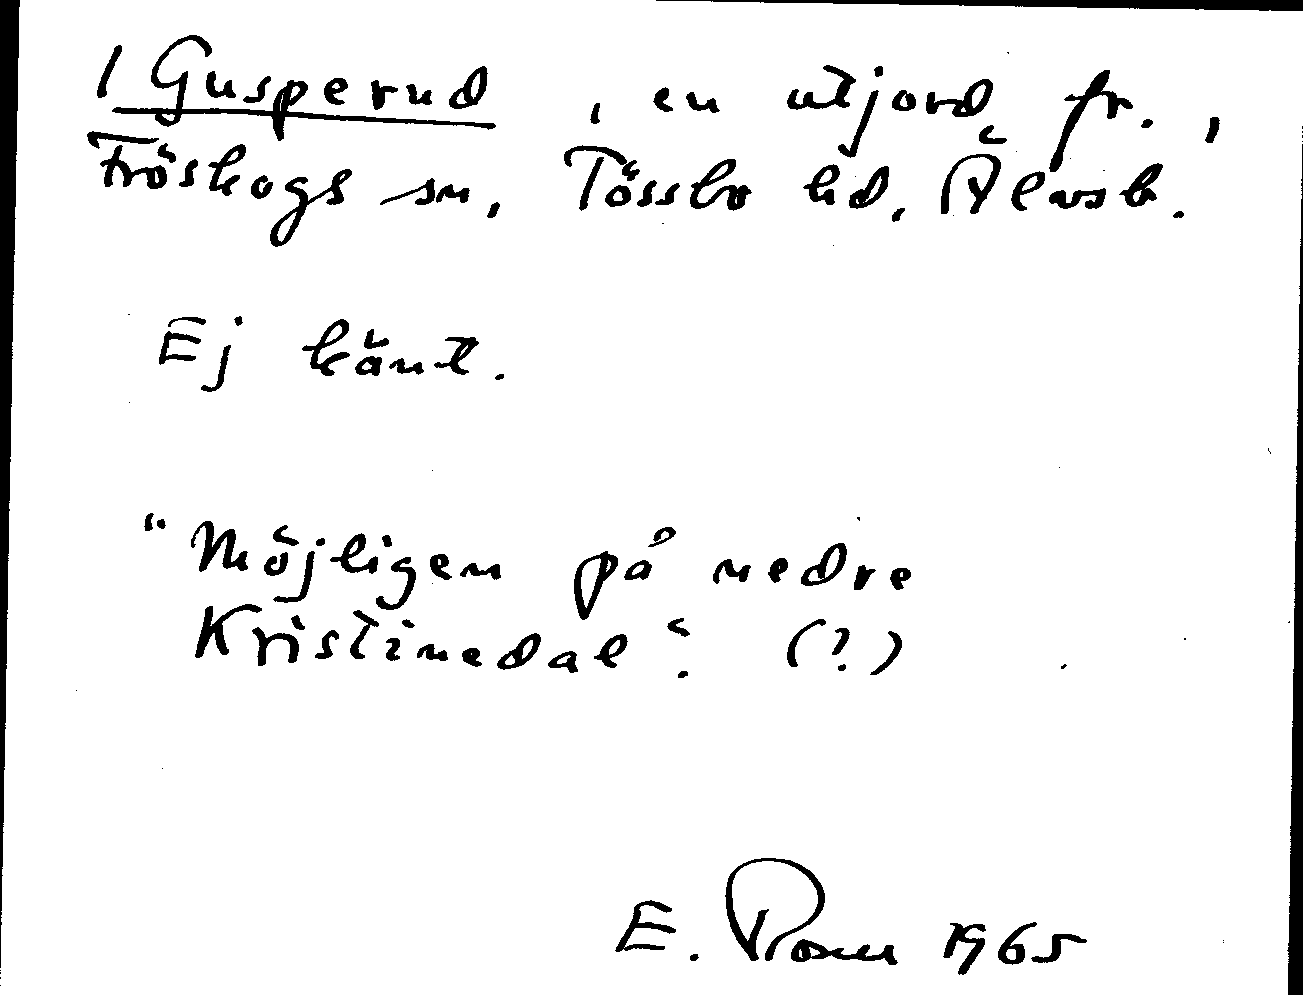 1 Gusperud, en utjord, fr.,
Fröskogs sn, Tössbo hd. Älvsb.
Ej känt.
"Möjligen på nedre
Kristinedal". (?)
E. 1965